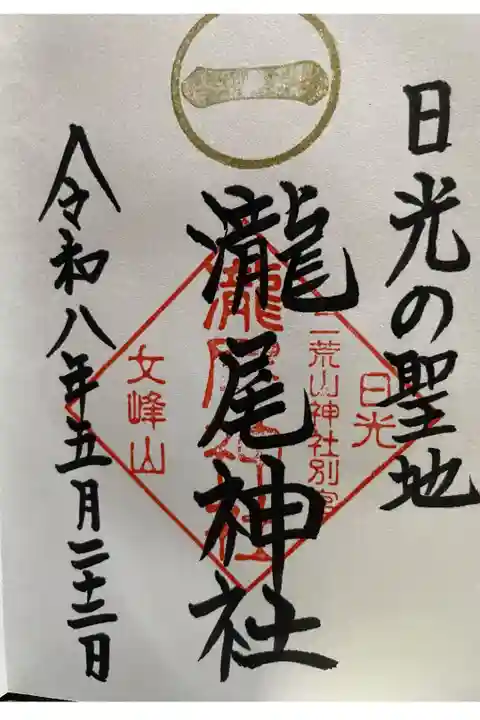 日光の聖地
日光
二荒山神社別宮
瀧尾神社
瀧尾神社
女峰山
令和八年五月二十二日